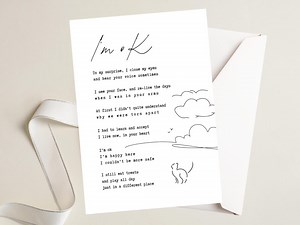 I'm oK
To my surprise, I close my eyes
and hear your voice sometimes
I see your face, and re-live the days
when I was in your arms
At first I didn't quite understand
why we were torn apart
I had to learn and accept
I live now, in your heart
I'm ok
I'm happy here
I couldn't be more safe
I still eat treats
and play all day
just in a different place